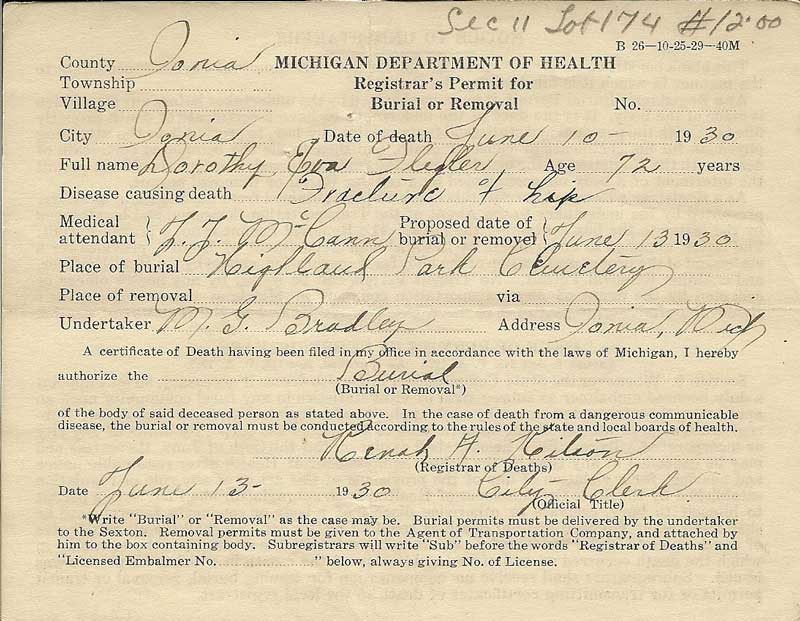 Sec 11 Lot 174 #12.00
B 26—10-25-29—40M
County Ionia MICHIGAN DEPARTMENT OF HEALTH
Township Registrar's Permit for
Village Burial or Removal No.
City Ionia Date of death June 10- 1930
Full name Dorothy Eva Flegler Age 72 years
Disease causing death Fracture of hip
Medical attendant { J. J. McCann Proposed date of burial or removal { June 13 1930
Place of burial Highland Park Cemetery
Place of removal via
Undertaker M. G. Bradley Address Ionia, Mich
A certificate of Death having been filed in my office in accordance with the laws of Michigan, I hereby
authorize the Burial
(Burial or Removal*)
of the body of said deceased person as stated above. In the case of death from a dangerous communicable
disease, the burial or removal must be conducted according to the rules of the state and local boards of health.
(Registrar of Deaths)
Date June 13- 1930 City Clerk
(Official Title)
*Write "Burial" or "Removal" as the case may be. Burial permits must be delivered by the undertaker
to the Sexton. Removal permits must be given to the Agent of Transportation Company, and attached by
him to the box containing body. Subregistrars will write "Sub" before the words "Registrar of Deaths" and
"Licensed Embalmer No. " below, always giving No. of License.